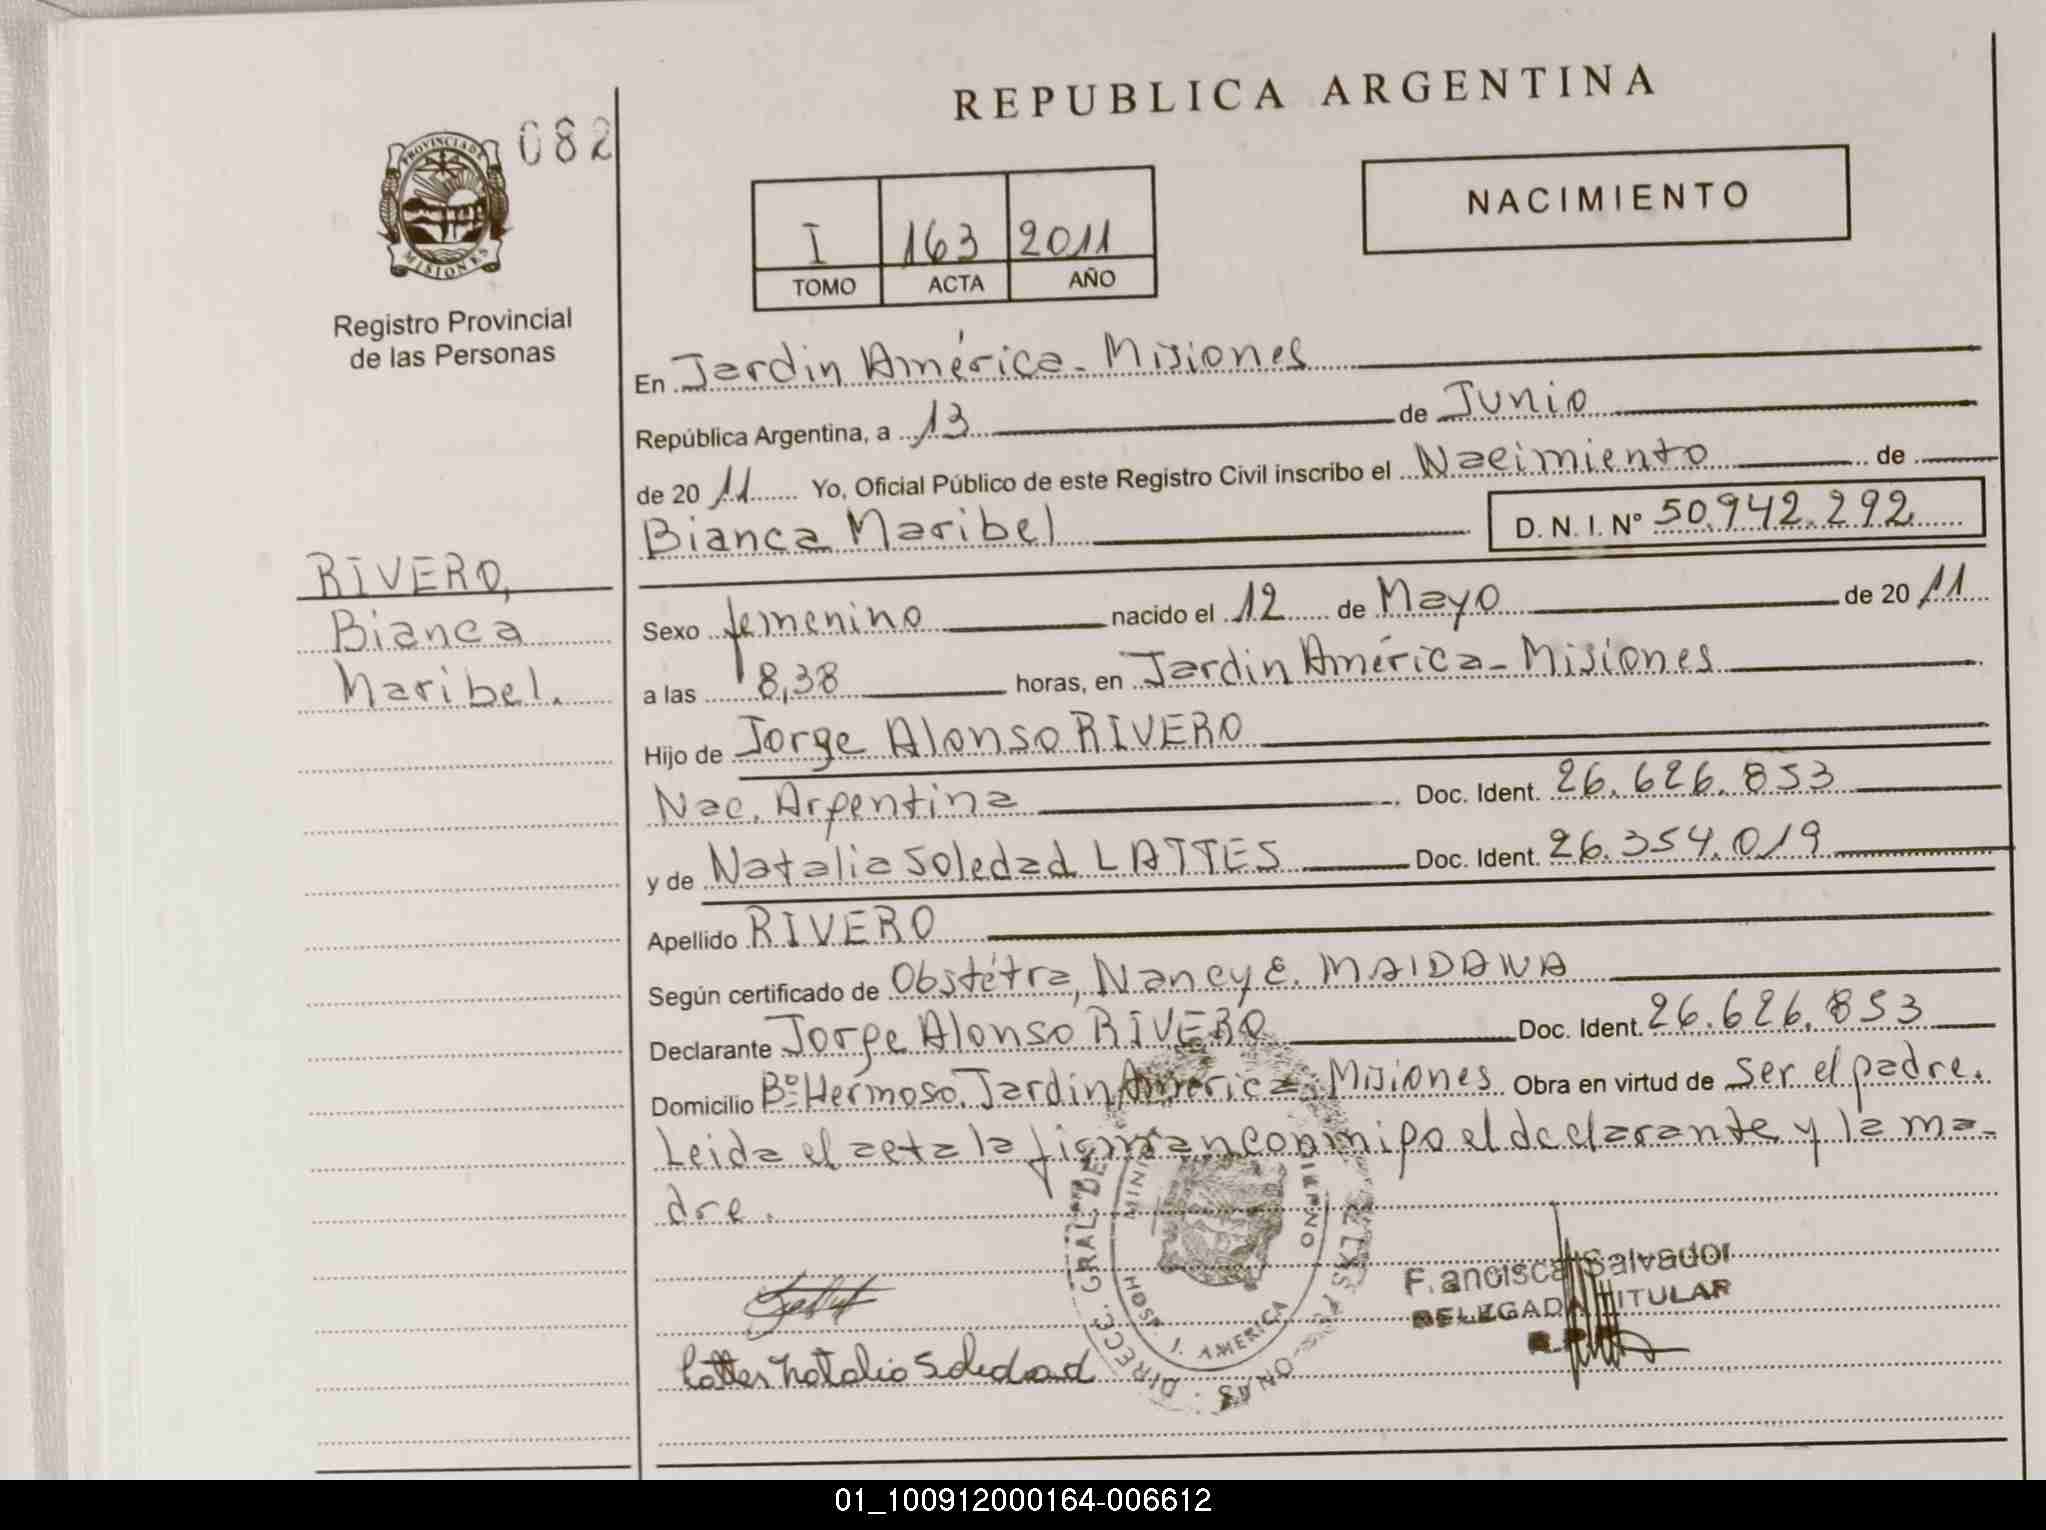 REPUBLICA ARGENTINA
082
PROVINCIA DE
MISIONES
Registro Provincial
de las Personas
I 163 2011
TOMO ACTA AÑO
NACIMIENTO
RIVERO,
Bianca
Maribel.
En Jardin América - Misiones
República Argentina, a 13 de Junio
de 2011 Yo, Oficial Público de este Registro Civil inscribo el Nacimiento de
Bianca Maribel D. N. I. N° 50.942.292
Sexo femenino nacido el 12 de Mayo de 2011
a las 8,38 horas, en Jardin América - Misiones
Hijo de Jorge Alonso RIVERO
Nac. Argentina Doc. Ident. 26.626.853
y de Natalia Soledad LATTES Doc. Ident. 26.354.019
Apellido RIVERO
Según certificado de Obstétra, Nancy E. MAIDANA
Declarante Jorge Alonso RIVERO Doc. Ident. 26.626.853
Domicilio Bº Hermoso. Jardin América. Misiones Obra en virtud de ser el padre.
Leida el acta la firman conmigo el declarante y la ma-
dre.
DIRECC. GRAL. DE
HOSP. J. AMERICA
Salvador
DELEGADA TITULAR
Lattes Natalia Soledad
01_100912000164-006612